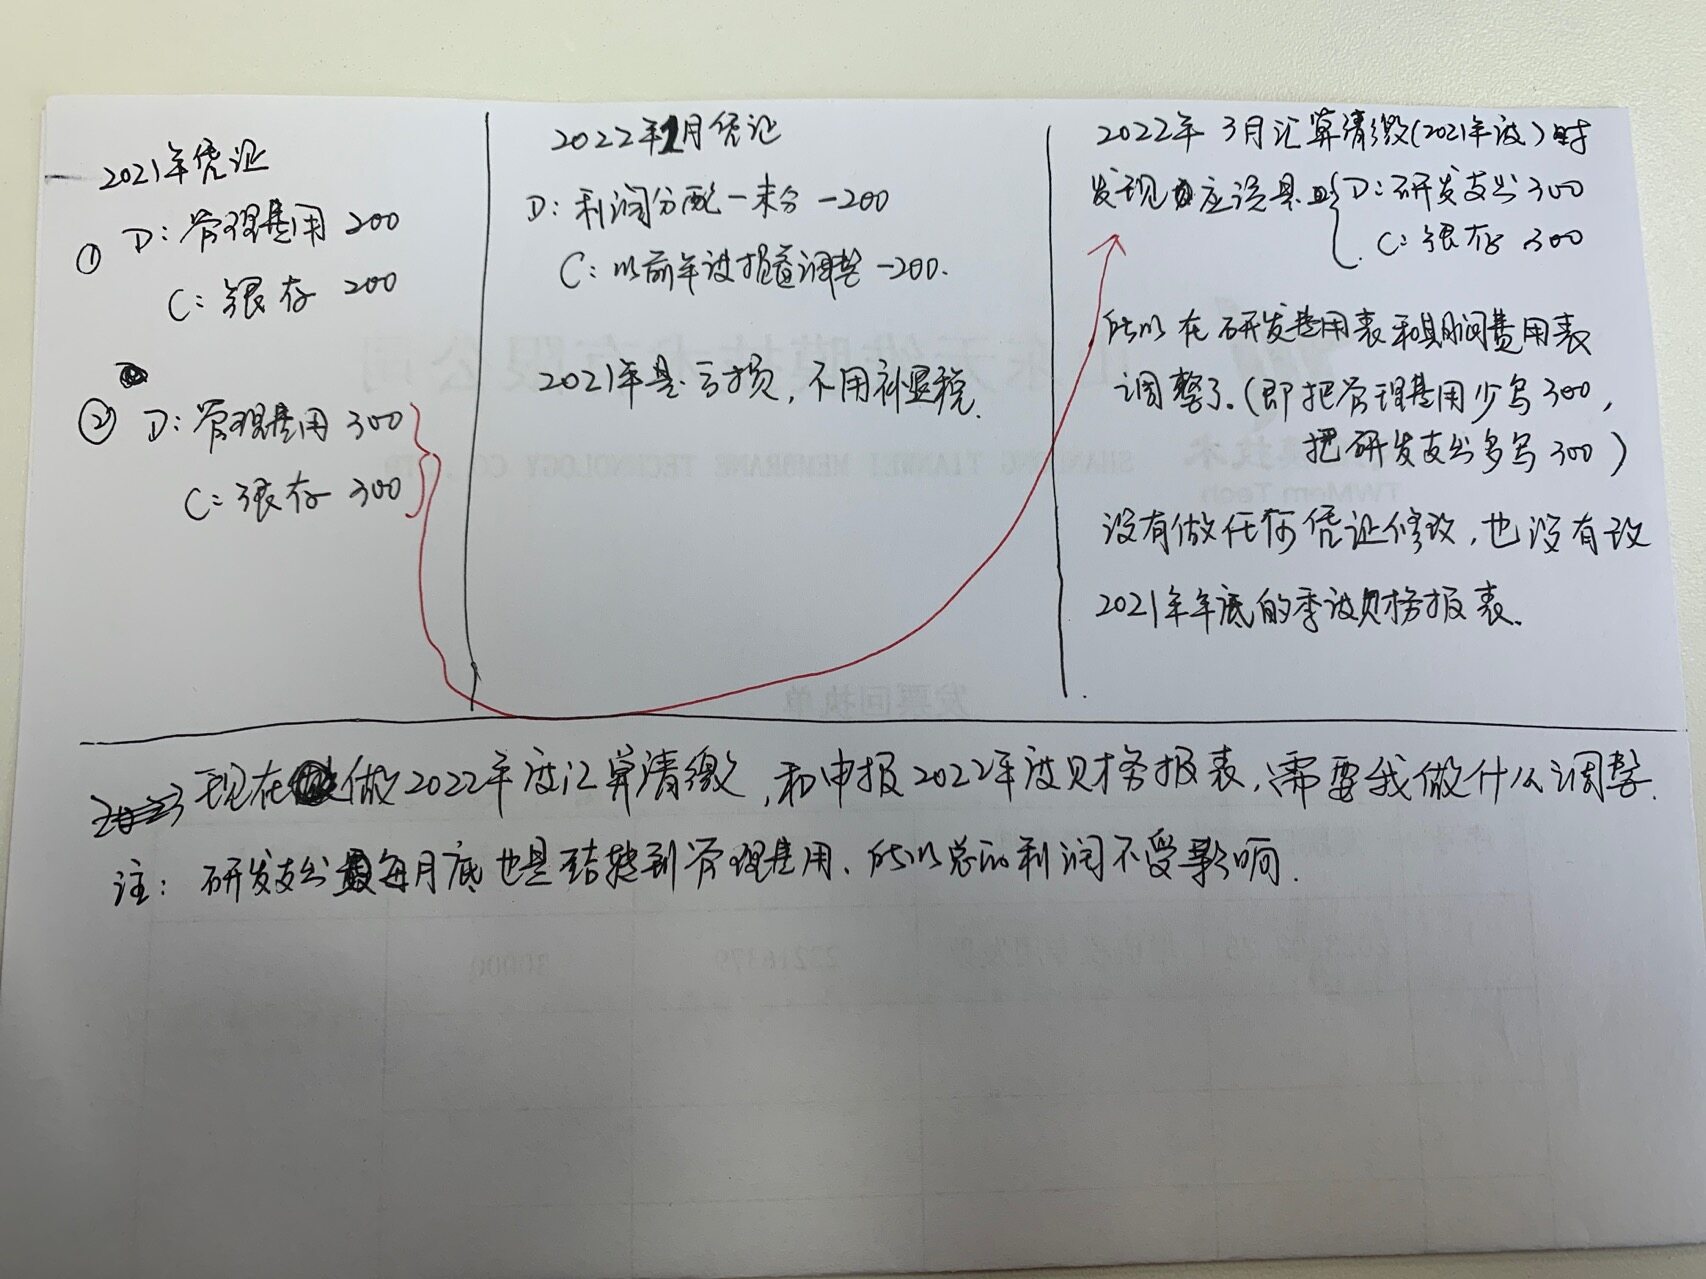 2021年凭证
① D: 管理费用 200
C: 银存 200
② D: 管理费用 300
C: 银存 300
2022年1月凭证
D: 利润分配－未分 －200
C: 以前年度损益调整 －200.
2021年是亏损, 不用补显税.
2022年 3月汇算清缴(2021年度)时
发现 应该是 D: 研发支出 300
C: 银存 300
所以在研发费用表和期间费用表
调整了.(即把管理费用少写300,
把研发支出多写300)
没有做任何凭证修改, 也没有改
2021年年底的季度财务报表.
现在 做2022年度汇算清缴, 和申报2022年度财务报表, 需要我做什么调整.
注: 研发支出 每月底也是结转到管理费用. 所以总的利润不受影响.
山东天维膜技术有限公司
SHANDONG TIANWEI MEMBRANE TECHNOLOGY CO., LTD.
膜技术
TWMem Tech
发票回执单